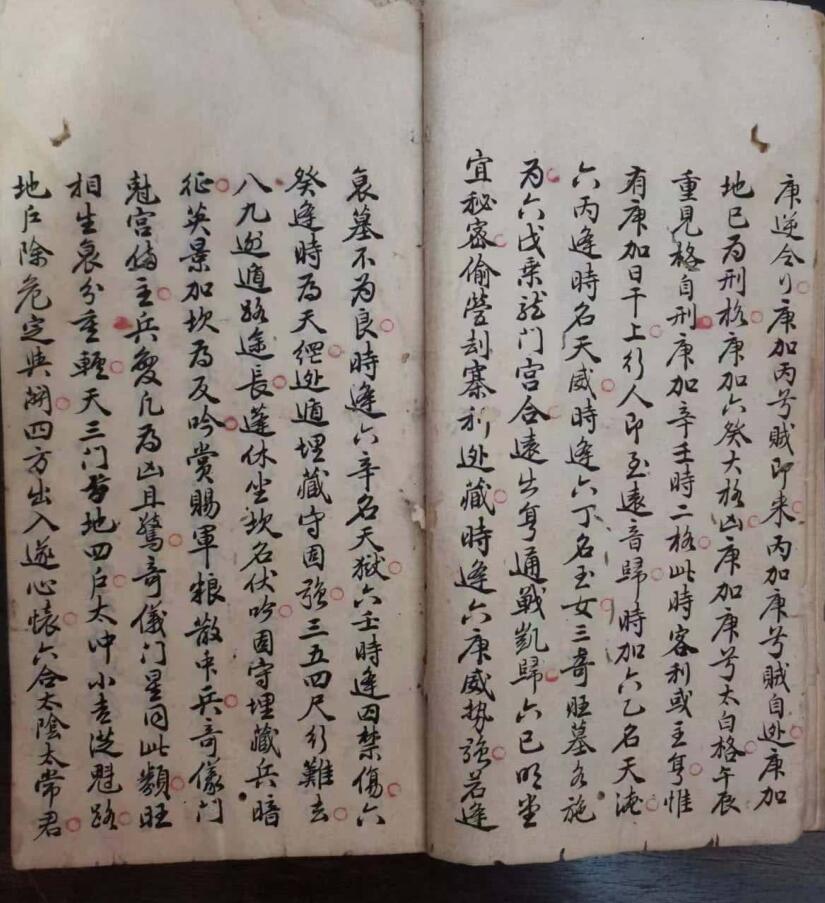 庚逆令行庚加丙兮贼即来丙加庚兮贼自逃庚加
地已为刑格庚加六癸大格凶庚加庚兮太白格午辰
重見格自刑庚加辛壬時二格此時客利或主身惟
有庚加日干上行人即至遠音歸時加六乙名天
六丙逢時名天威時逢六丁名玉女三奇旺墓各施
为六戊乘龍门宫合遠出身通戦凱歸六已明堂
宜秘密偷营刦寨利逃藏時逢六庚威势強若逢
衰墓不为良時逢六辛名天狱六壬時逢囚禁傷六
癸逢時为天網逃遁埋藏守固強三五四尺行難去
八九逃遁路途長蓬休坐坎名伏吟固守埋藏兵暗
征英景加坎为反吟赏賜軍粮散中兵奇儀门
尅宫偹主兵变凡为凶且驚奇儀门星同此類旺
相生衰分重輕天三门兮地四户太冲小吉従魁路
地户除危定與開四方出入遂心懐六合太陰太常君